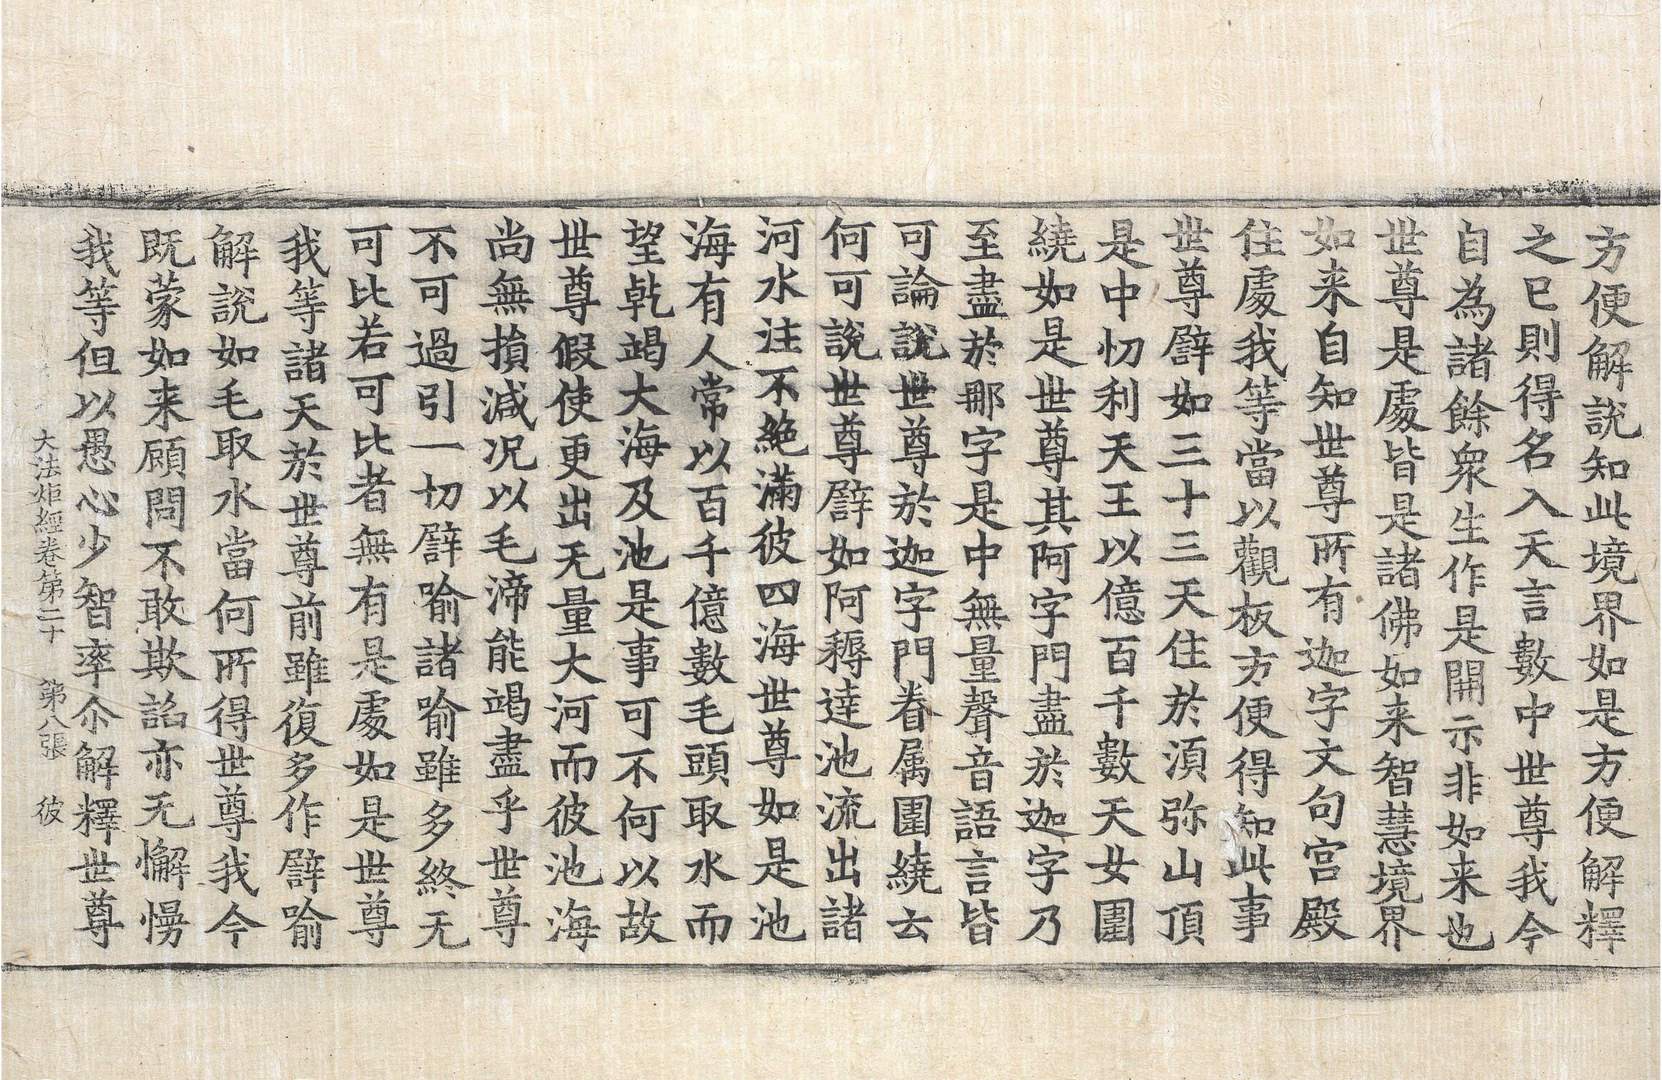 方便解說知此境界如是方便解釋
之已則得名入天言數中世尊我今
自為諸餘衆生作是開示非如来也
世尊是處皆是諸佛如来智慧境界
如来自知世尊所有迦字文句宫殿
住處我等當以觀板方便得知此事
世尊譬如三十三天住於湏弥山頂
是中忉利天王以億百千數天女圍
繞如是世尊其阿字門盡於迦字乃
至盡於那字是中無量聲音語言皆
可論說世尊於迦字門眷属圍繞云
何可說世尊譬如阿耨達池流出諸
河水注不絶滿彼四海世尊如是池
海有人常以百千億數毛頭取水而
望乾竭大海及池是事可不何以故
世尊假使更出无量大河而彼池海
尚無損减况以毛渧能竭盡乎世尊
不可過引一切譬喻諸喻雖多終无
可比若可比者無有是處如是世尊
我等諸天於世尊前雖復多作譬喻
解說如毛取水當何所得世尊我今
既蒙如来顧問不敢欺諂亦无懈慢
我等但以愚心少智率尒解釋世尊
大法炬經卷第二十　第八張　彼